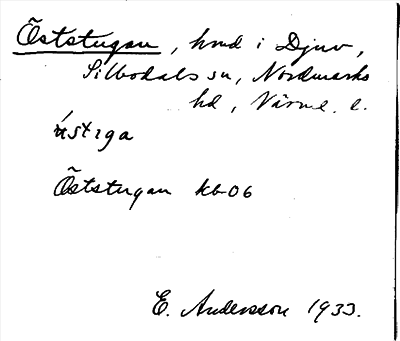 Öststugan, hmd i Djuv,
Silbodals sn, Nordmarks
hd, Värml. l.
Öststugan kb 06
E. Andersson 1933.